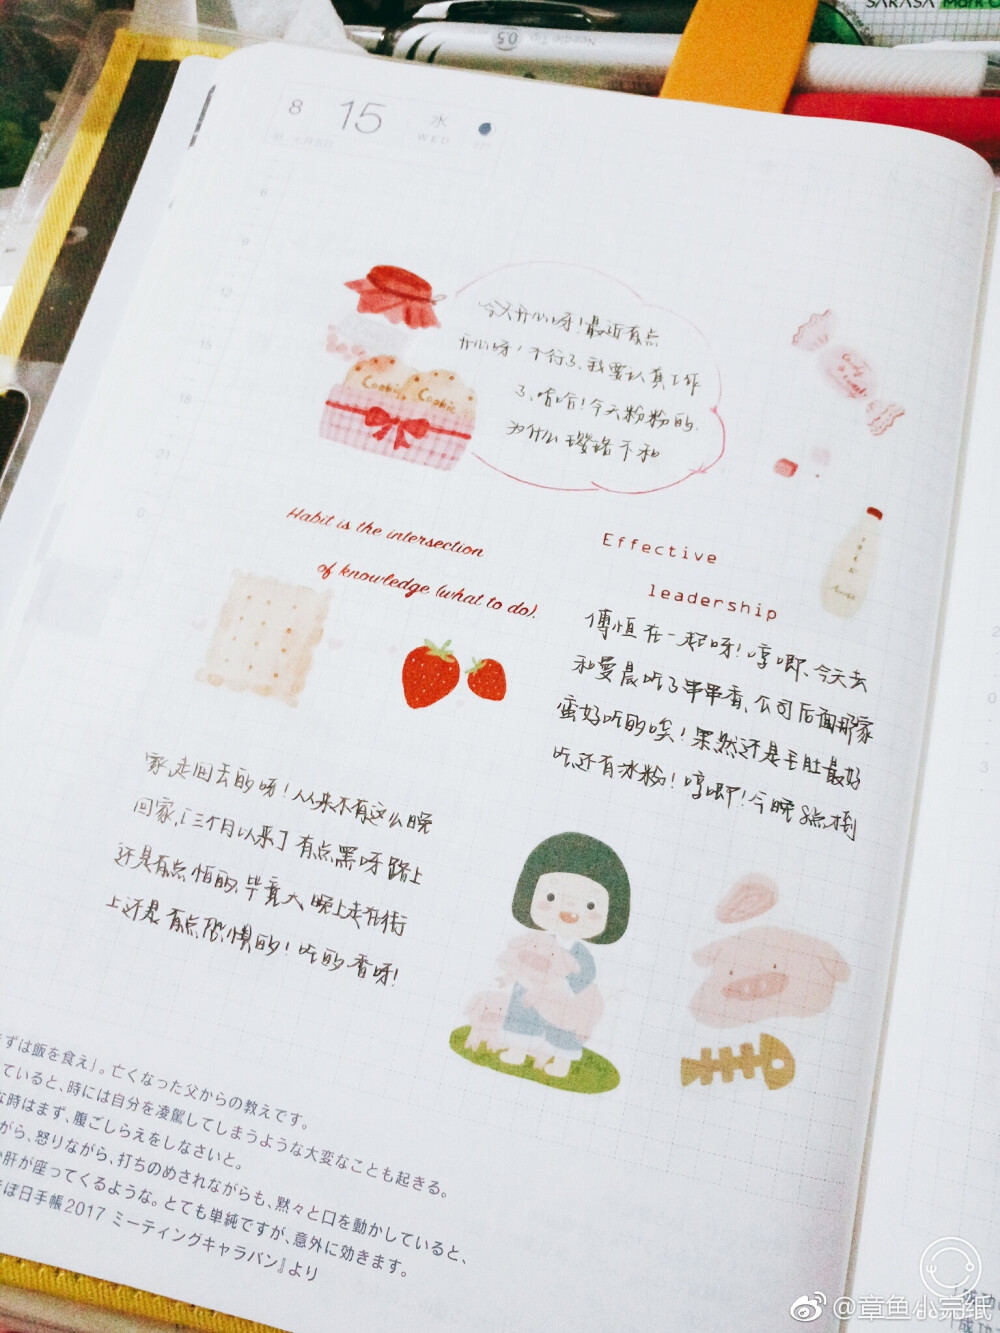 SARASA Mark O
Needle Tip 0.5
8 15 水
WED
6
9
12
15
18
21
0
今天开心呀!最近有点
开心呀!不行了、我要认真工作
了、哈哈!今天粉粉的、
为什么璎珞不和
Cookie Cookie
Habit is the intersection
of knowledge (what to do).
Effective
leadership
傅恒在一起呀!哼唧、今天去
和曼晨吃了串串香、公司后面那家
蛮好吃的唉!果然还是毛肚最好
吃、还有冰粉!哼唧!今晚8点到
家、走回去的呀!从来不有这么晚
回家、[三个月以来]有点黑呀路上
还是有点怕的、毕竟大晚上走在街
上还是有点恐惧的!吃的香呀!
ずは飯を食え」。亡くなった父からの教えです。
ていると、時には自分を凌駕してしまうような大変なことも起きる。
な時はまず、腹ごしらえをしなさいと。
がら、怒りながら、打ちのめされながらも、黙々と口を動かしていると、
肝が座ってくるような。とても単純ですが、意外に効きます。
ほ日手帳2017 ミーティングキャラバン』より
@章鱼小完纸